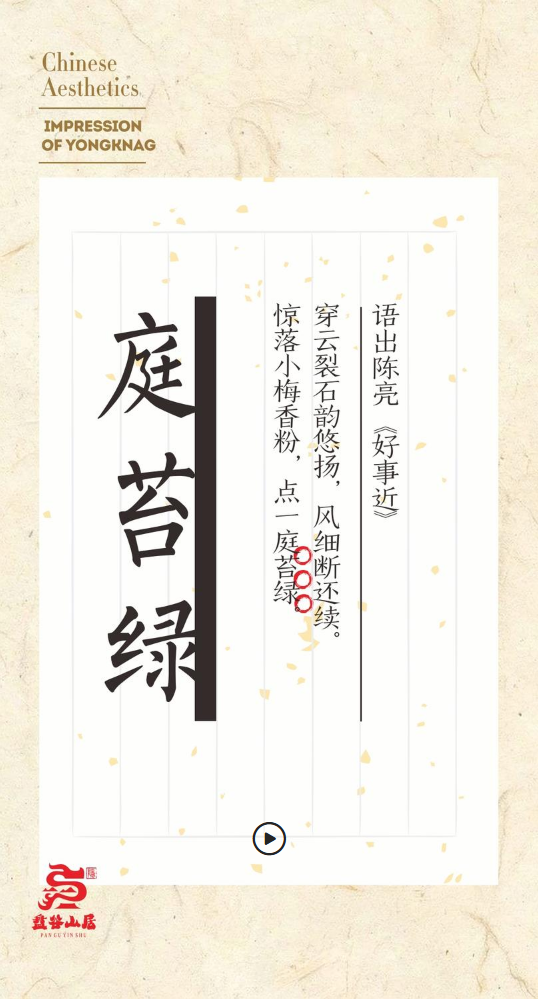 Chinese
Aesthetics
IMPRESSION
OF YONGKNAG
语出陈亮《好事近》
穿云裂石韵悠扬，风细断还续。
惊落小梅香粉，点一庭苔绿。
庭苔绿
盘谷山居
PAN GU YIN SHU